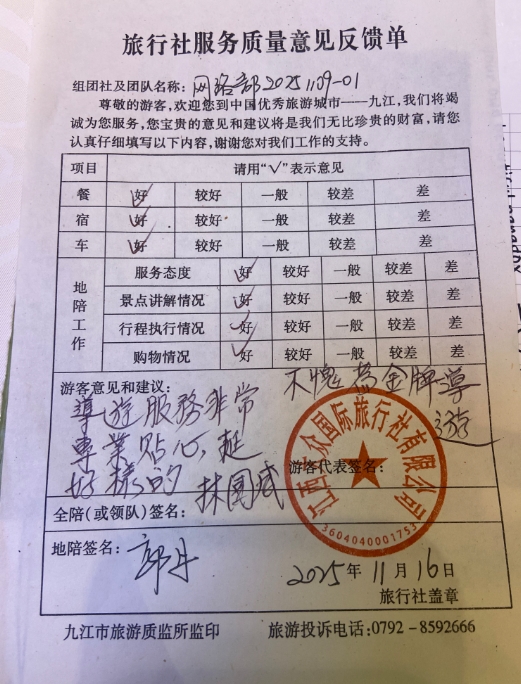 旅行社服务质量意见反馈单
组团社及团队名称: 网络部20251109-01
尊敬的游客,欢迎您到中国优秀旅游城市——九江,我们将竭
诚为您服务,您宝贵的意见和建议将是我们无比珍贵的财富,请您
认真仔细填写以下内容,谢谢您对我们工作的支持。
项目 请用“√”表示意见
餐 好 较好 一般 较差 差
宿 好 较好 一般 较差 差
车 好 较好 一般 较差 差
地陪工作
服务态度 好 较好 一般 较差 差
景点讲解情况 好 较好 一般 较差 差
行程执行情况 好 较好 一般 较差 差
购物情况 好 较好 一般 较差 差
游客意见和建议: 不愧為金牌導
遊
導遊服務非常
專業貼心,超
好樣的
游客代表签名: 林國斌
全陪(或领队)签名:
地陪签名: 郭丹
2025年11月16日
旅行社盖章
国际旅行社有限公司
3604040001753
九江市旅游质监所监印 旅游投诉电话:0792-8592666